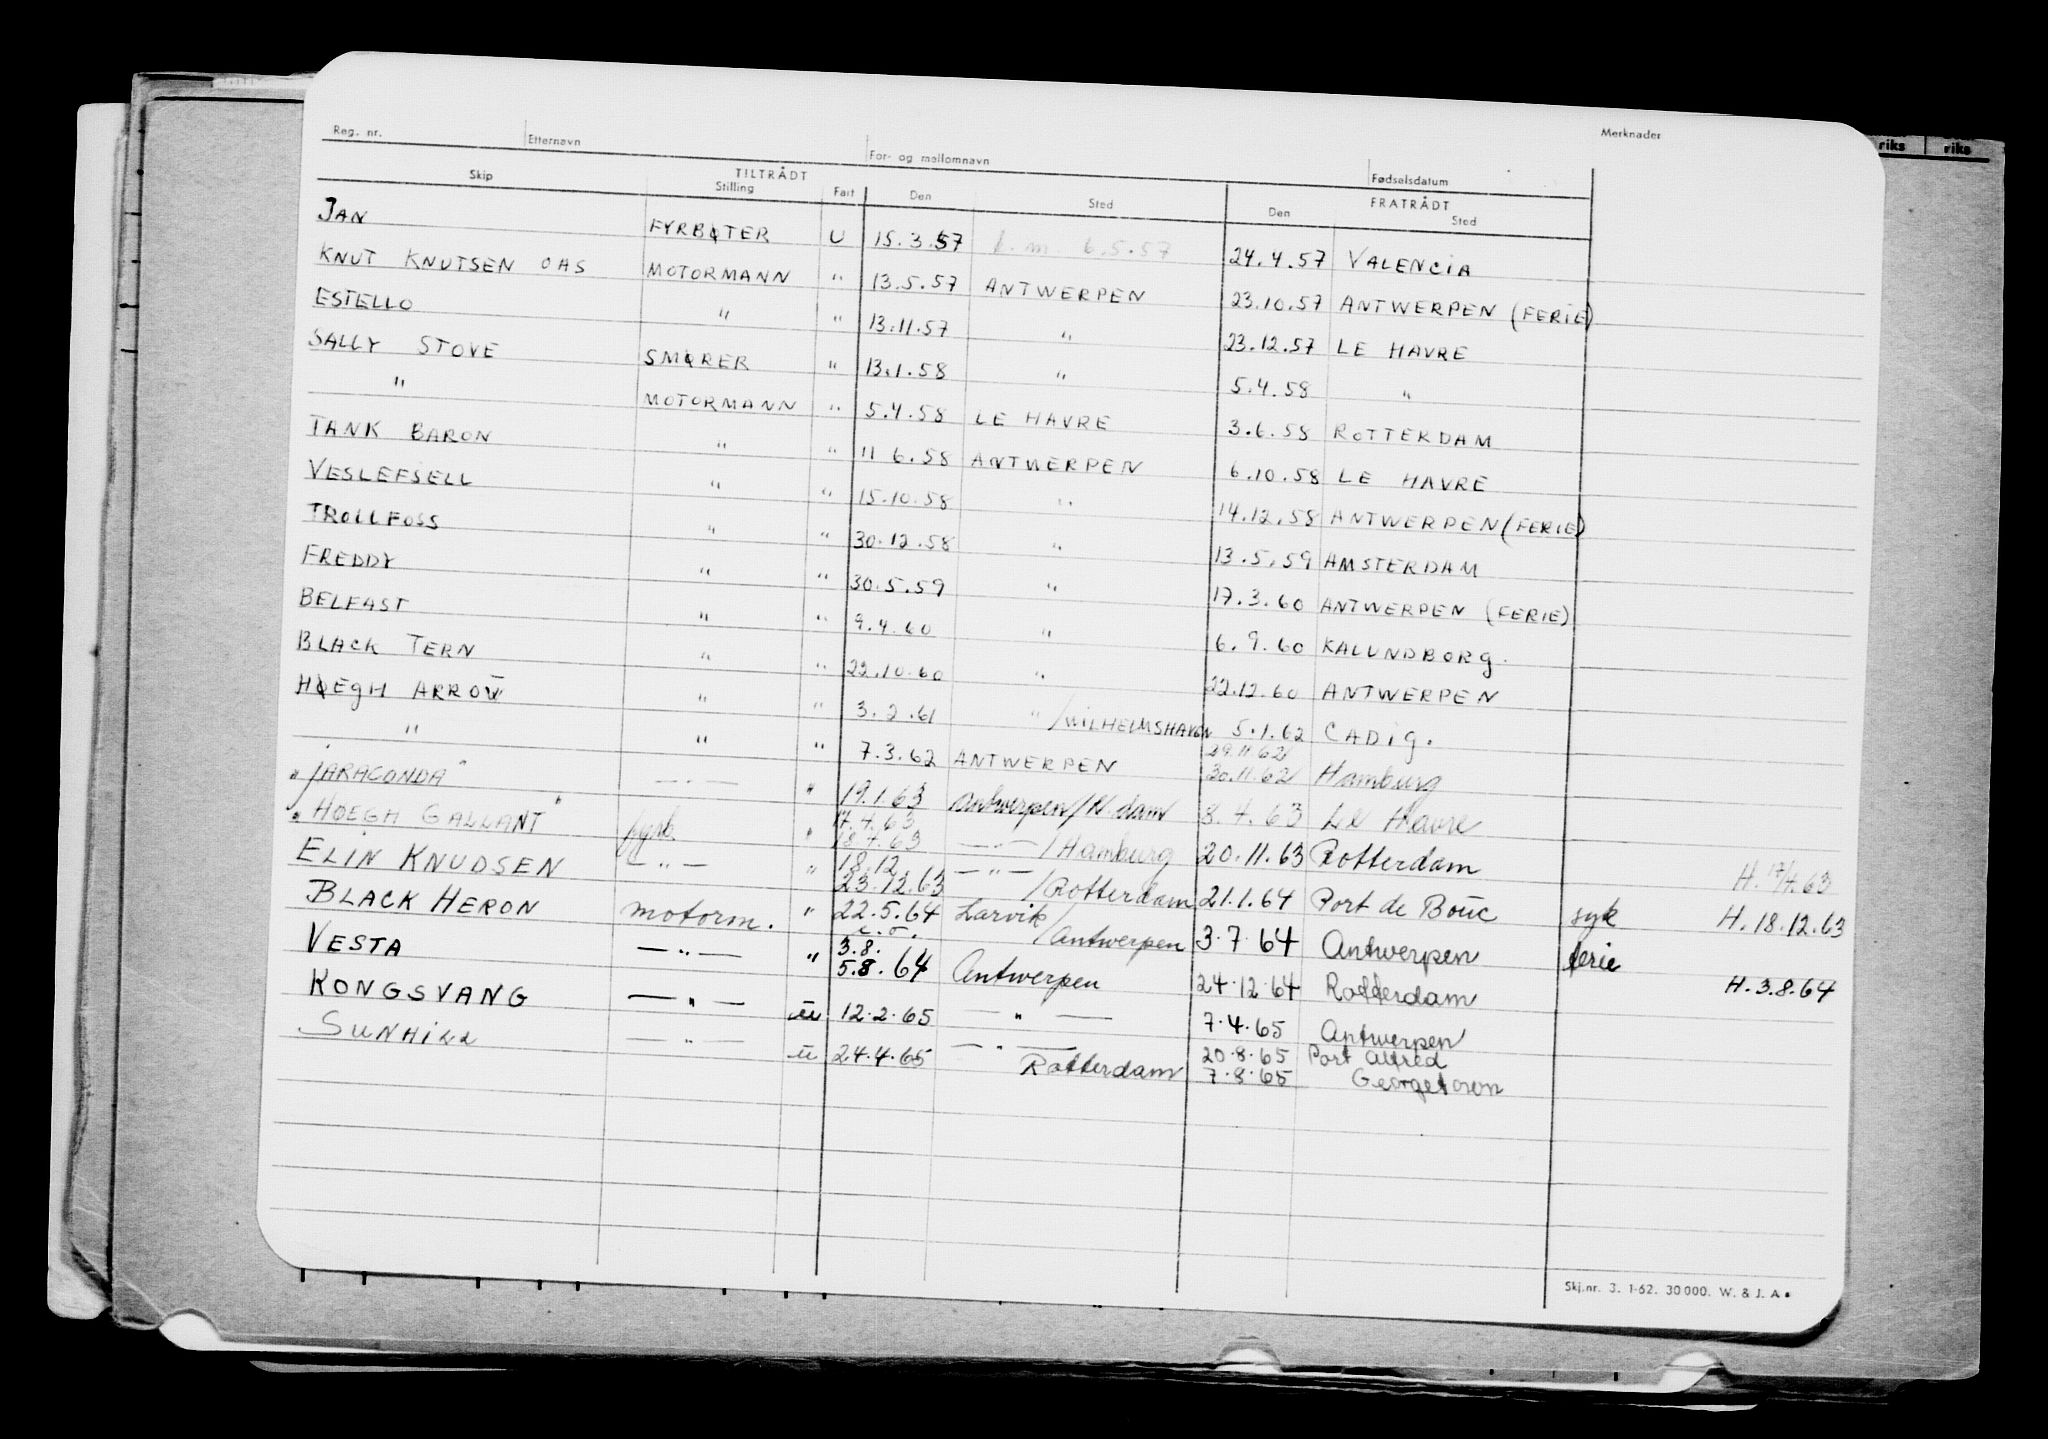 Reg. nr. Etternavn For- og mellomnavn Fødselsdatum Merknader
Skip TILTRÅDT Stilling Fart Den Sted FRATRÅDT Den Sted
JAN FYRBØTER U 15.3.57 6.5.57 24.4.57 VALENCIA
KNUT KNUTSEN OAS MOTORMANN " 13.5.57 ANTWERPEN 23.10.57 ANTWERPEN (FERIE)
ESTELLO " " 13.11.57 " 23.12.57 LE HAVRE
SALLY STOVE SMØRER " 13.1.58 " 5.4.58 "
" MOTORMANN " 5.4.58 LE HAVRE 3.6.58 ROTTERDAM
TANK BARON " " 11 6.58 ANTWERPEN 6.10.58 LE HAVRE
VESLEFJELL " " 15.10.58 " 14.12.58 ANTWERPEN (FERIE)
TROLLFOSS " " 30.12.58 " 13.5.59 AMSTERDAM
FREDDY " " 30.5.59 " 17.3.60 ANTWERPEN (FERIE)
BELFAST " " 9.4.60 " 6.9.60 KALUNDBORG.
BLACK TERN " " 22.10.60 " 22.12.60 ANTWERPEN
HØEGH ARROW " " 3.2.61 " /WILHELMSHAVEN 5.1.62 CADIG.
" " " 7.3.62 ANTWERPEN 29.11.62 30.11.62 Hamburg
"JARACONDA" —"— " 19.1.63 Antwerpen/R.dam 8.4.63 Le Havre
"HØEGH GALLANT" fyrb. " 17.4.63 18.4.63 —"—/Hamburg 20.11.63 Rotterdam H. 17/4.63
ELIN KNUDSEN —"— " 18.12. 23.12.63 —"—/Rotterdam 21.1.64 Port de Bouc syk H. 18.12.63
BLACK HERON motorm. " 22.5.64 Larvik/Antwerpen 3.7.64 Antwerpen ferie
VESTA —"— " 3.8. 5.8.64 Antwerpen 24.12.64 Rotterdam H. 3.8.64
KONGSVANG —"— u 12.2.65 —"— 7.4.65 Antwerpen
SUNHILL —"— u 24.4.65 —"— Rotterdam 20.8.65 Port Alfred
7.8.65 Georgetown
Skj.nr. 3. 1-62. 30 000. W. & J. A.
riks riks